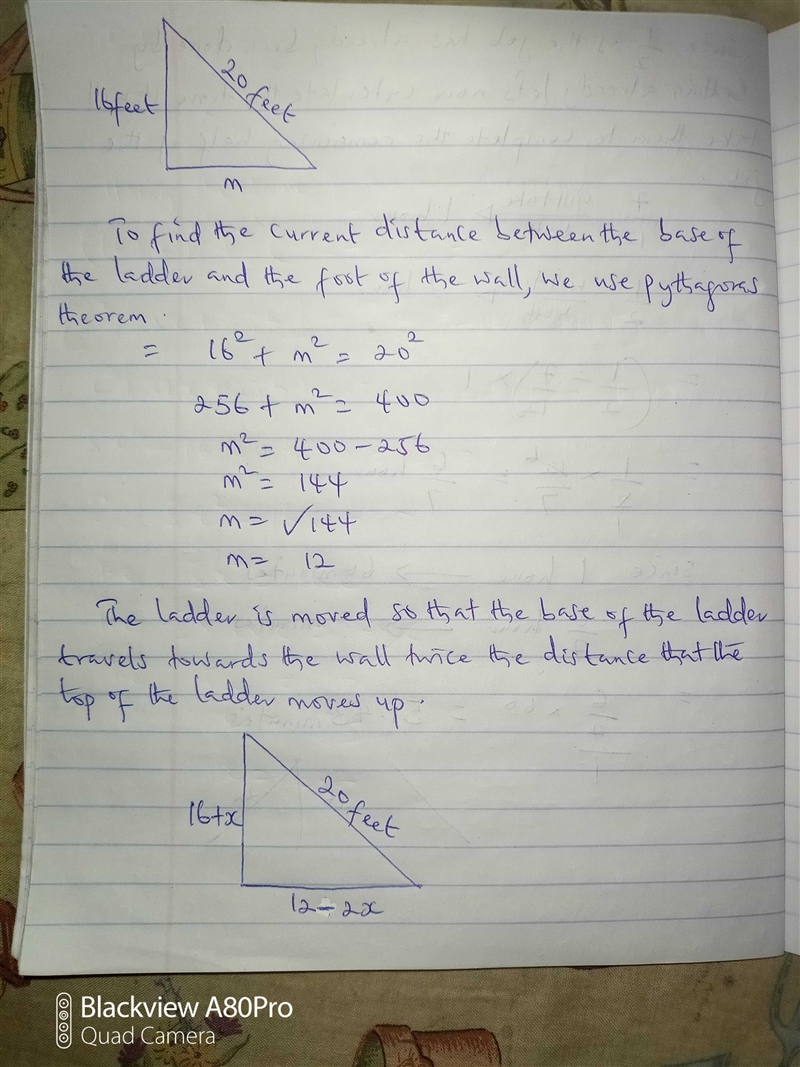 16feet
20 feet
m
To find the current distance between the base of
the ladder and the foot of the wall, we use pythagoras
theorem.
= 16² + m² = 20²
256 + m² = 400
m² = 400 - 256
m² = 144
m = √144
m = 12
The ladder is moved so that the base of the ladder
travels towards the wall twice the distance that the
top of the ladder moves up.
16+x
20 feet
12 - 2x
Blackview A80Pro
Quad Camera